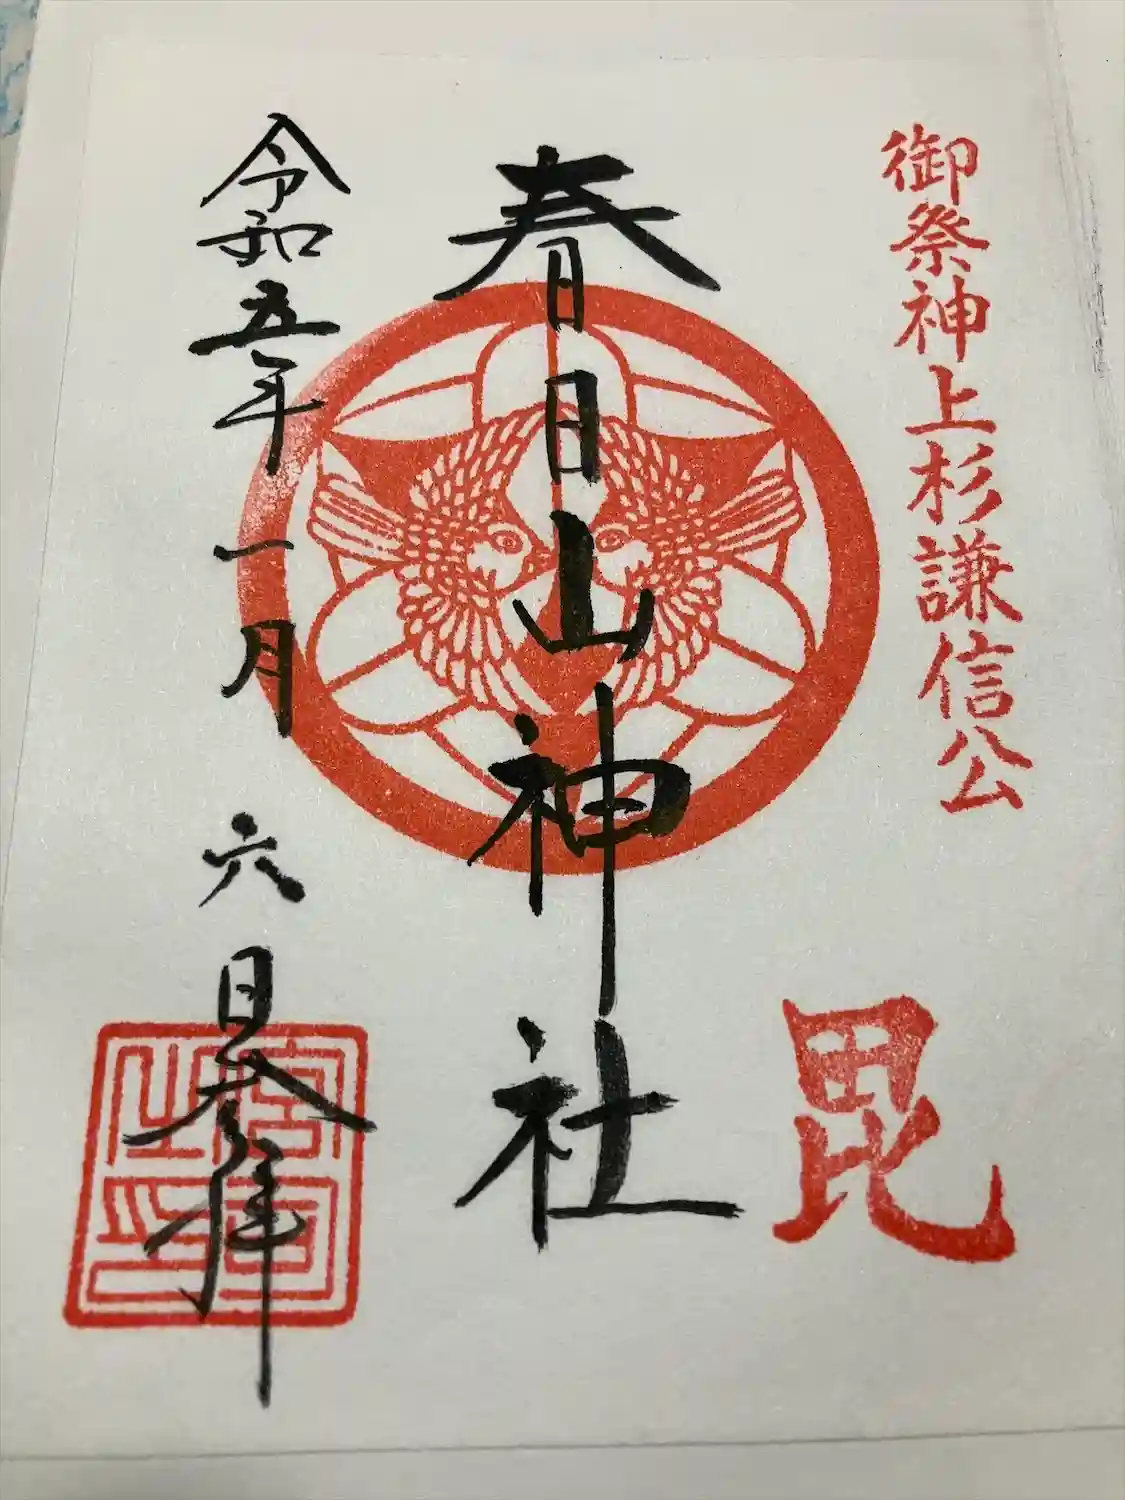 御祭神上杉謙信公
毘
春日山神社
令和五年一月六日参拝
宮司之印